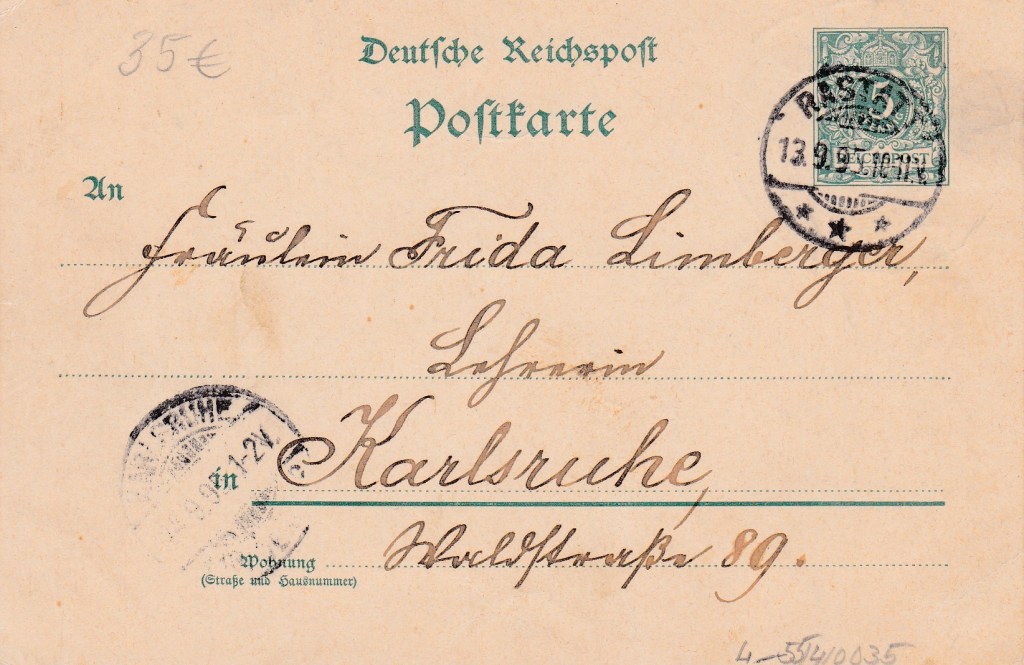 35 €
Deutsche Reichspost
Postkarte
5
REICHSPOST
RASTATT
13.9.95.10-11.V.
An
Fräulein Frida Limberger,
Lehrerin
KARLSRUHE
1-2N.
in Karlsruhe,
Wohnung
(Straße und Hausnummer)
Waldstraße 89.